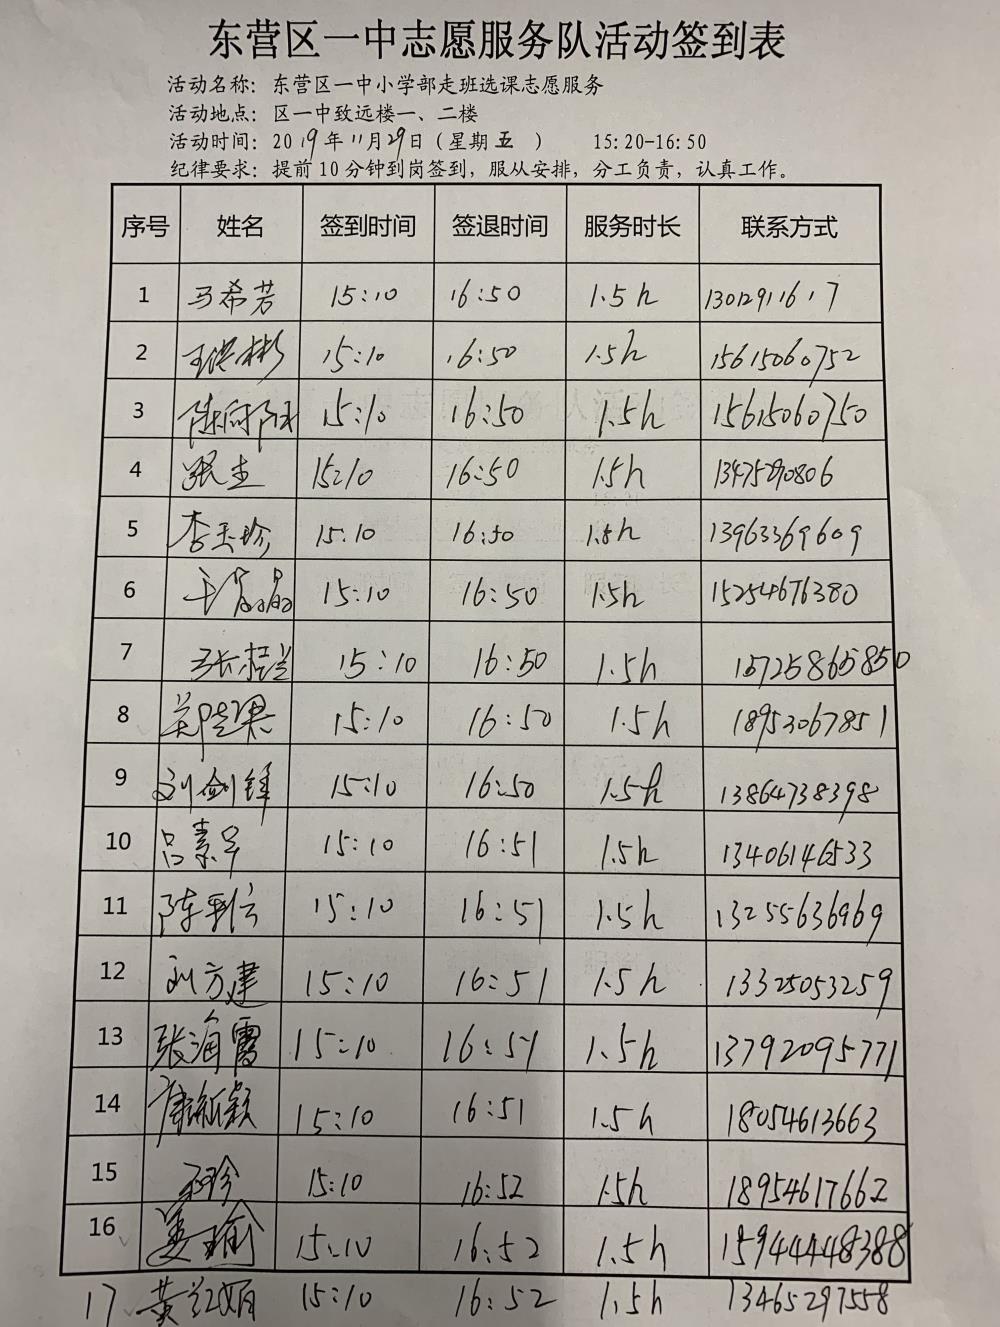 东营区一中志愿服务队活动签到表
活动名称：东营区一中小学部走班选课志愿服务
活动地点：区一中致远楼一、二楼
活动时间：2019年11月29日（星期五） 15:20-16:50
纪律要求：提前10分钟到岗签到，服从安排，分工负责，认真工作。
序号 姓名 签到时间 签退时间 服务时长 联系方式
1 马希芳 15:10 16:50 1.5h 13012911617
2 15:10 16:50 1.5h 15615060752
3 陈向阳 15:10 16:50 1.5h 15615060750
4 张主 15:10 16:50 1.5h 13475290806
5 李玉珍 15:10 16:50 1.5h 13963369609
6 王晶晶 15:10 16:50 1.5h 15254676380
7 15:10 16:50 1.5h 15725865850
8 15:10 16:50 1.5h 18953067851
9 刘剑锋 15:10 16:50 1.5h 13864738398
10 吕素华 15:10 16:51 1.5h 13406146533
11 15:10 16:51 1.5h 13255636969
12 刘方建 15:10 16:51 1.5h 13325053259
13 张海霞 15:10 16:51 1.5h 13792095771
14 15:10 16:51 1.5h 18054613663
15 15:10 16:52 1.5h 18954617662
16 15:10 16:52 1.5h 15944448388
17 黄红娟 15:10 16:52 1.5h 13465297558